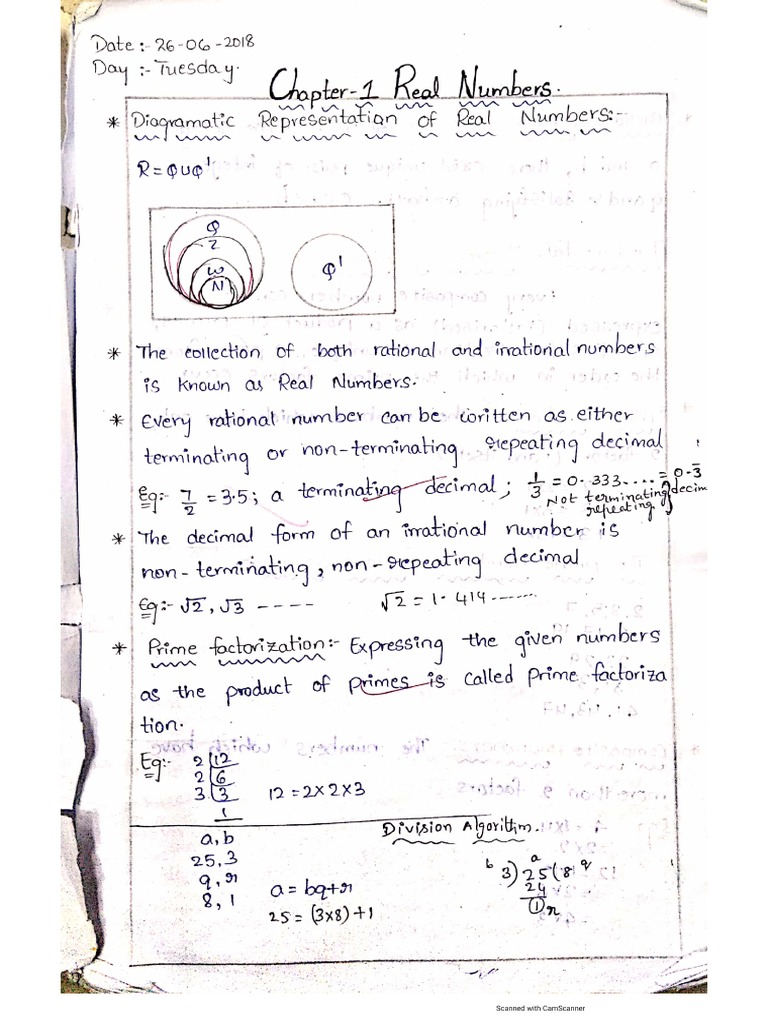 Date:- 26-06-2018
Day :- Tuesday.
Chapter-1 Real Numbers.
* Diagramatic Representation of Real Numbers:-
R = Q∪Q'
Q
Z
W
N
Q'
* The collection of both rational and irrational numbers
is known as Real Numbers.
* Every rational number can be written as either
terminating or non-terminating repeating decimal
Eg:- 7/2 = 3.5; a terminating decimal; 1/3 = 0.333.... = 0.3̅
Not terminating decim
repeating
* The decimal form of an irrational number is
non-terminating, non-repeating decimal
Eg:- √2, √3 ---- √2 = 1.414......
* Prime factorization:- Expressing the given numbers
as the product of primes is called prime factoriza
tion.
Eg:- 2 | 12
2 | 6
3 | 3 12 = 2×2×3
1
Division Algorithm.
a, b
25, 3
q, r
8, 1
a = bq+r
25 = (3×8)+1
a
b 3) 25 (8 q
24
1 r
Scanned with CamScanner